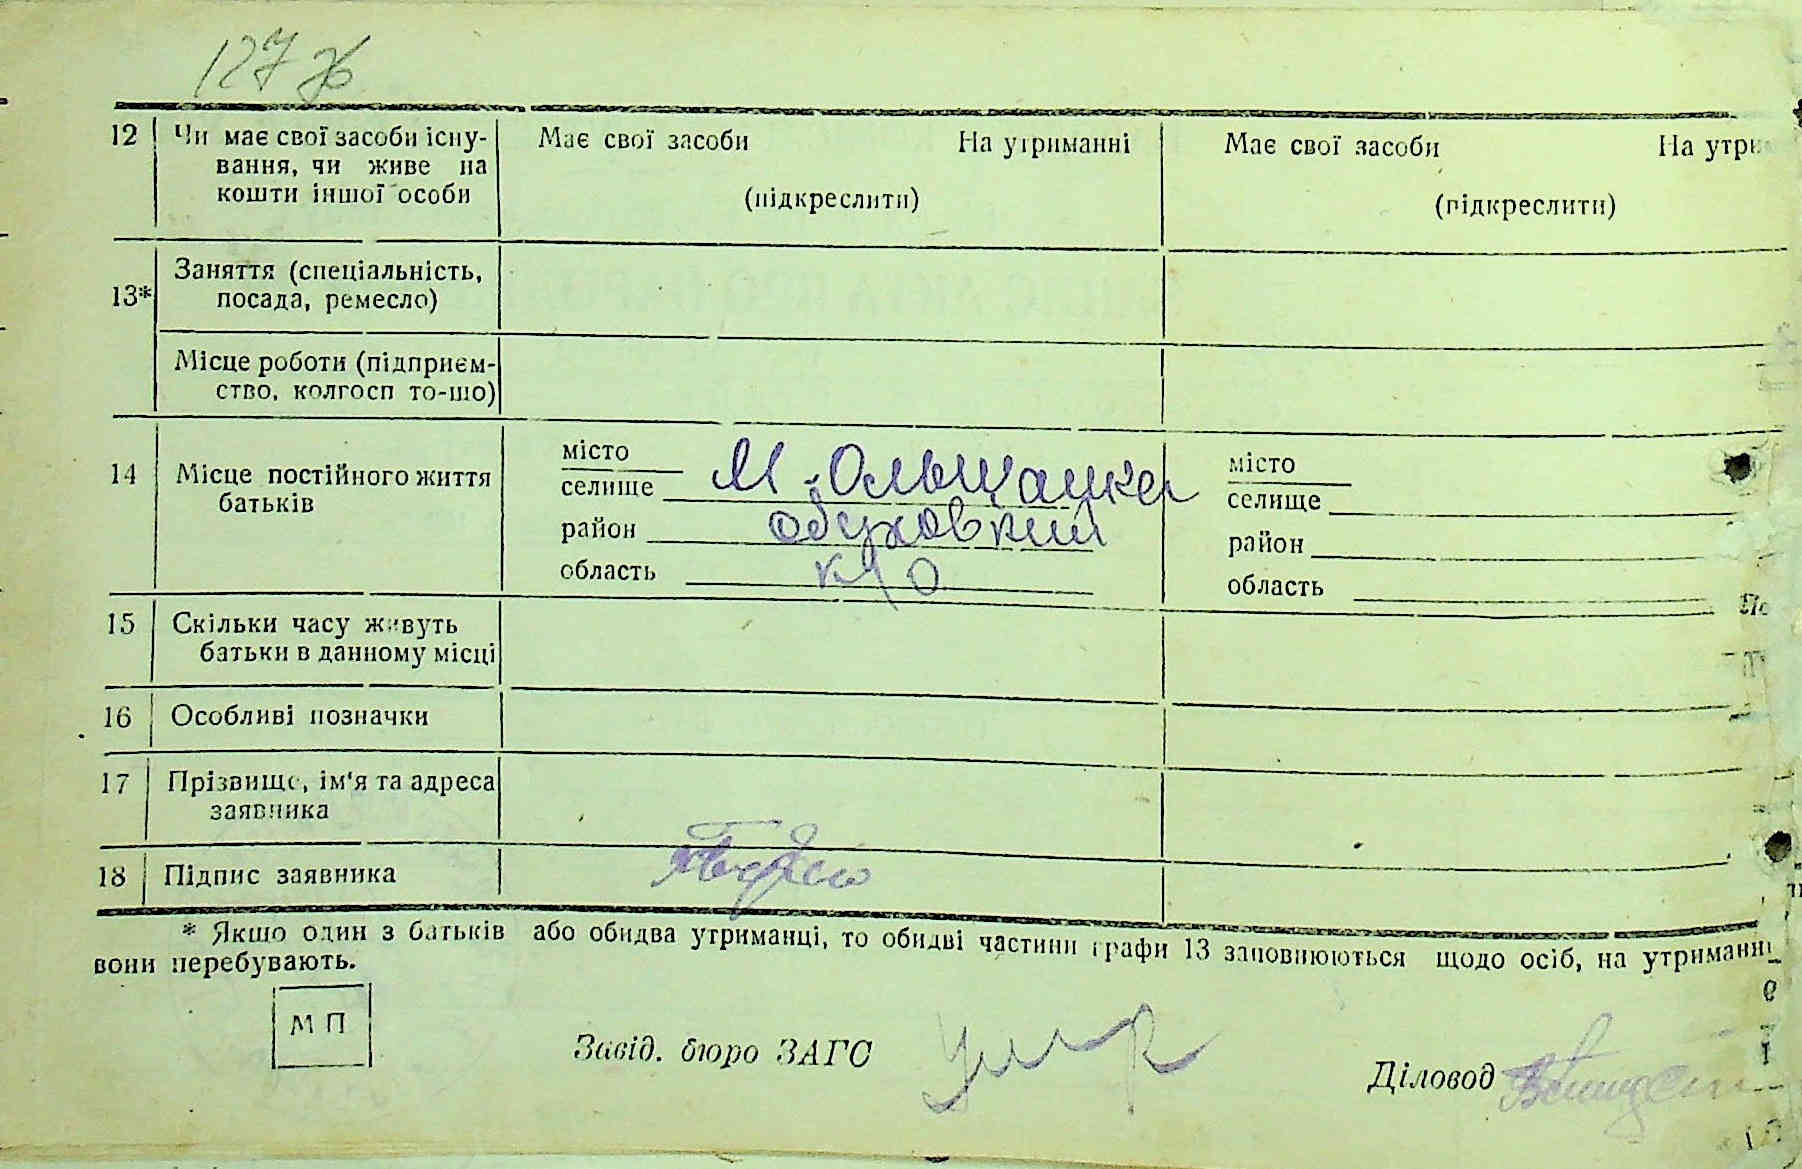 127 ж
12 Чи має свої засоби існу-
вання, чи живе на
кошти іншої особи
Має свої засоби На утриманні
(підкреслити)
Має свої засоби На утри
(підкреслити)
13* Заняття (спеціальність,
посада, ремесло)
Місце роботи (підприєм-
ство, колгосп то-що)
14 Місце постійного життя
батьків
місто
селище М-Ольшанка
район обуховкий
область К/О
місто
селище
район
область
15 Скільки часу живуть
батьки в данному місці
16 Особливі позначки
17 Прізвище, ім'я та адреса
заявника
18 Підпис заявника
* Якшо один з батьків або обидва утриманці, то обидві частини графи 13 заповнюються щодо осіб, на утриманні
вони перебувають.
М П
Завід. бюро ЗАГС
Діловод